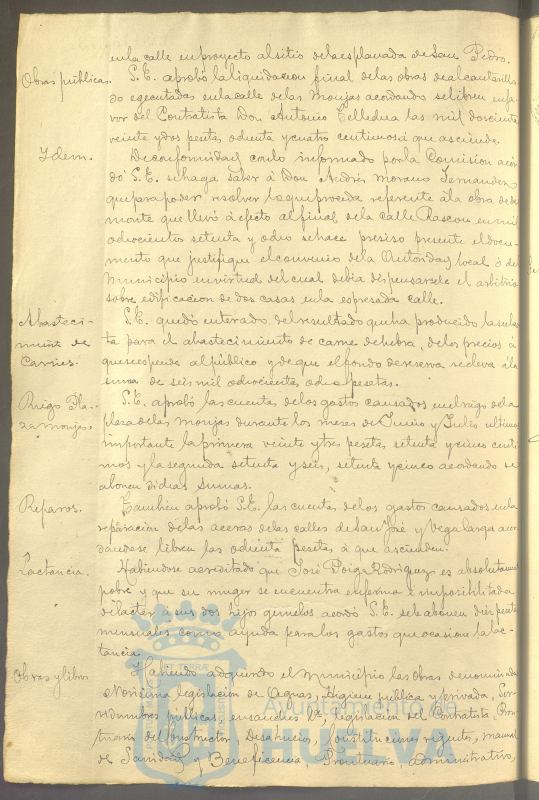 en la calle en proyecto al sitio de la esplanada de San Pedro.
Obras públicas. S.E. aprobó la liquidacion final de las obras de alcantarilla
do egecutadas en la calle de las Monjas acordando se libren en fa-
vor del Contratista Don Antonio las mil doscientas
veinte y dos pesetas ochenta y cuatro centimos á que asciende.
Ydem. De conformidad con lo informado por la Comision acor
dó S.E. se haga saber á Don Andrés Moreno Fernandez
que para poder resolver lo que proceda referente á la obra de des
monte que llevó á efecto al final de la calle Rascon en mil
ochocientos setenta y ocho se hace preciso presente el docu-
mento que justifique el convenio de la Autoridad local ó del
Municipio en virtud del cual debia dispensarsele el arbitrio
sobre edificacion de dos casas en la espresada calle.
Abasteci-
miento de
Carnes. S.E. quedó enterado del resultado que ha producido la subas
ta para el abastecimiento de carne de hebra, de los precios á
que se espende al público y de que el fondo de reserva se eleva á la
suma de seis mil ochocientas ocho pesetas.
Riego Pla-
za monjas. S.E. aprobó las cuentas de los gastos causados en el riego de la
plaza de las Monjas durante los meses de Junio y Julio último
importante la primera veinte y tres pesetas setenta y cinco centi
mos y la segunda setenta y seis, setenta y cinco acordando se
abonen dichas sumas.
Reparos. Tambien aprobó S.E. las cuentas de los gastos causados en la
reparacion de las aceras de las calles de San José y Vega larga acor
dandose libren las ochenta pesetas á que ascienden.
Lactancia. Habiendose acreditado que José Poiga Rodriguez es absolutamente
pobre y que su muger se encuentra enferma é imposibilitada
de lactar á sus dos hijos gemelos acordó S.E. se le abonen diez pesetas
mensuales como ayuda para los gastos que ocasiona la lac-
tancia.
Obras y libros Habiendo adquirido el Municipio las obras denominadas
Novisima legislacion de Aguas, Higiene publica y privada, Ser-
vidumbres públicas, ensanches &ª, legislacion del Contratista, Pron
tuario del Instructor, Desahucio, Constituciones vigentes, manual
de Sanidad y Beneficencia Prontuario administrativo,
Ayuntamiento de
HUELVA